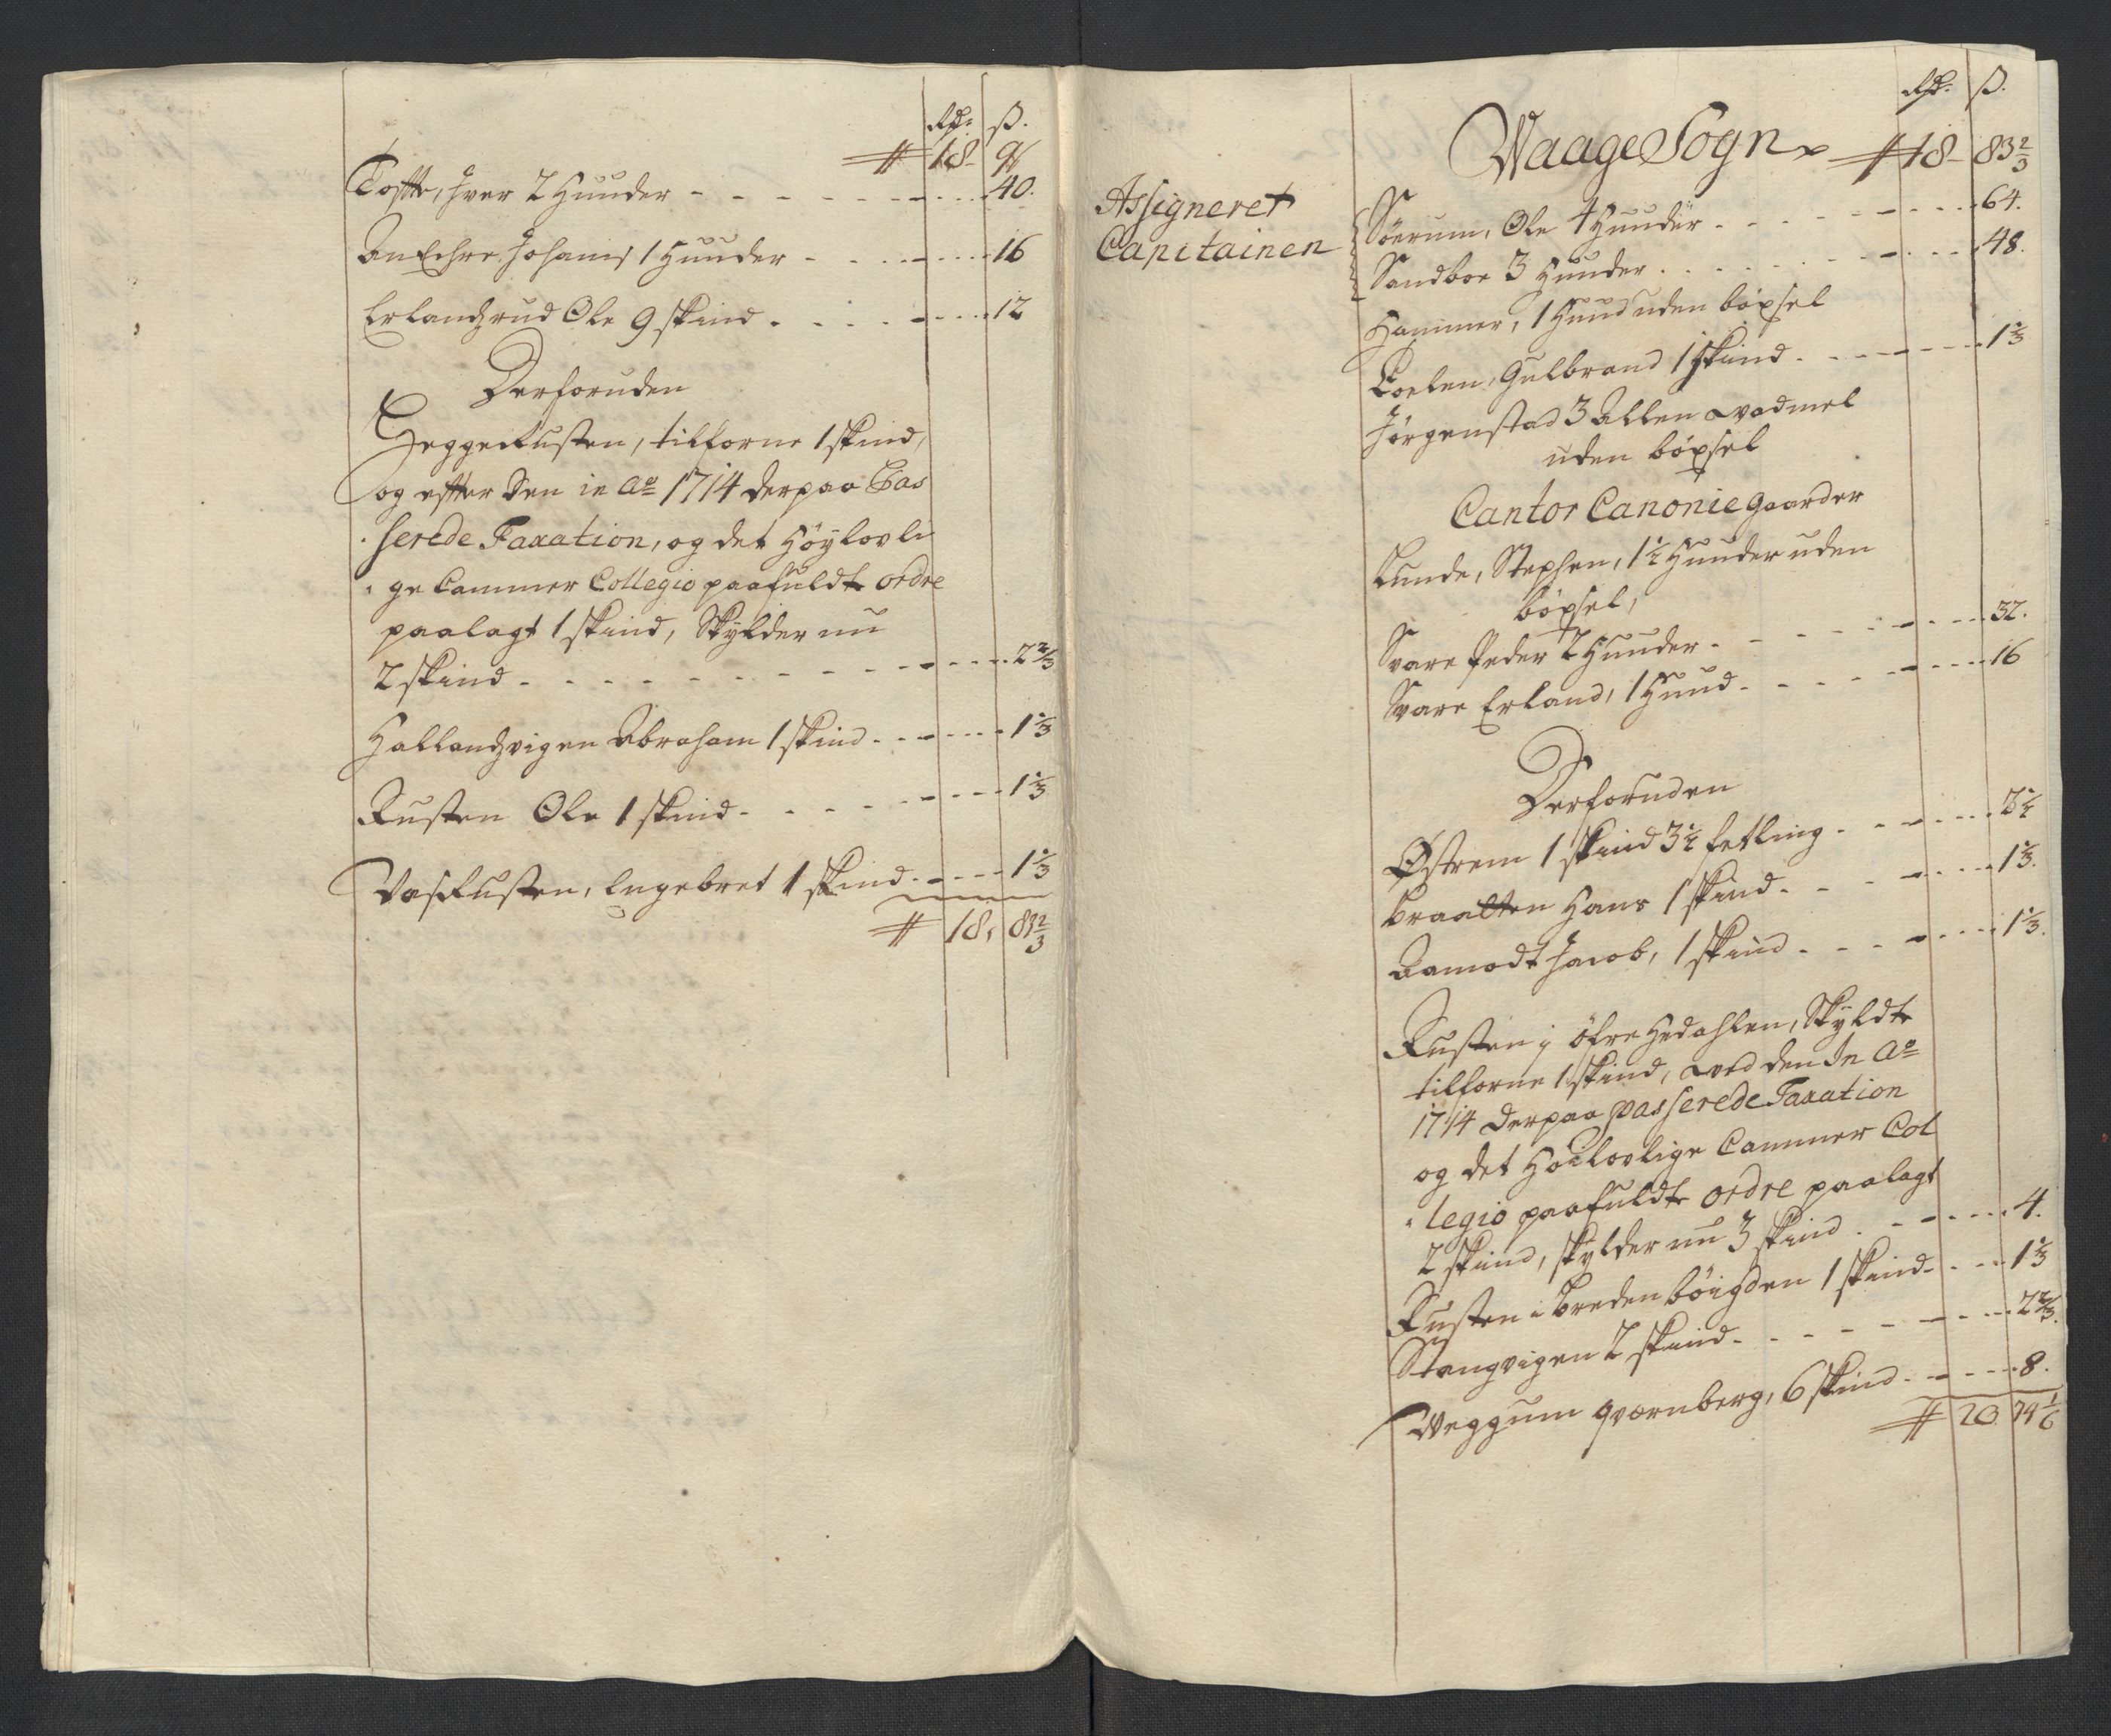 Rdr. ß.
# 18 - 96
Toffte, hver 2 Huuder - - - - 40.
Anschre Johannis 1 Huuder - - - - 16
Erlandzrud Ole 9 skind - - - - 12
Derforuden
Heggerusten, tilforne 1 skind,
og effter den in Ao 1714 derpaa Pas
serede Taxation, og det Høylovli
ge Cammer Collegio paafuldte ordre
paalagt 1 skind, Skylder nu
2 skind - - - - 2 2/3
Hallandzvigen Abraham 1 skind - - - - 1 1/3
Rusten Ole 1 skind - - - - 1 1/3
Vasrusten, Engebret 1 skind - - - - 1 1/3
# 18, 83 2/3
Rdr. ß.
Waage Sogn # 18 - 83 2/3
Assigneret
Capitainen
Søerum, Ole 4 Huuder - - - - 64.
Sandboe 3 Huuder - - - - 48.
Hammer, 1 Huud uden bøxsel
Gulbrand 1 skind - - - - 1 1/3
Jørgenstad 3 Allen wadmel
uden bøxsel
Cantor Canonie gaarder
Lunde, Stephen, 1 1/2 Huuder uden
bøxsel,
Svare Peder 2 Huuder - - - - 32.
Svare Erland, 1 Huud - - - - 16
Derforuden
Østrem 1 skind 3 1/2 fetling - - - - 2 1/2
Braatten Hans 1 skind - - - - 1 1/3.
Aamodt Jacob, 1 skind - - - - 1 1/3.
Rusten i øfre Hedahlen, Skyldte
tilforne 1 skind, ved den In Ao
1714 derpaa passerede Taxation
og det Høilovlige Cammer Col
legio paafuldte ordre paalagt
2 skind, skylder nu 3 skind - - - - 4.
Rusten i Breden bøigden 1 skind - - - 1 1/3
Stangvigen 2 skind - - - - 2 2/3.
Weggum qvernberg, 6 skind - - - - 8.
# 20. 74 1/6